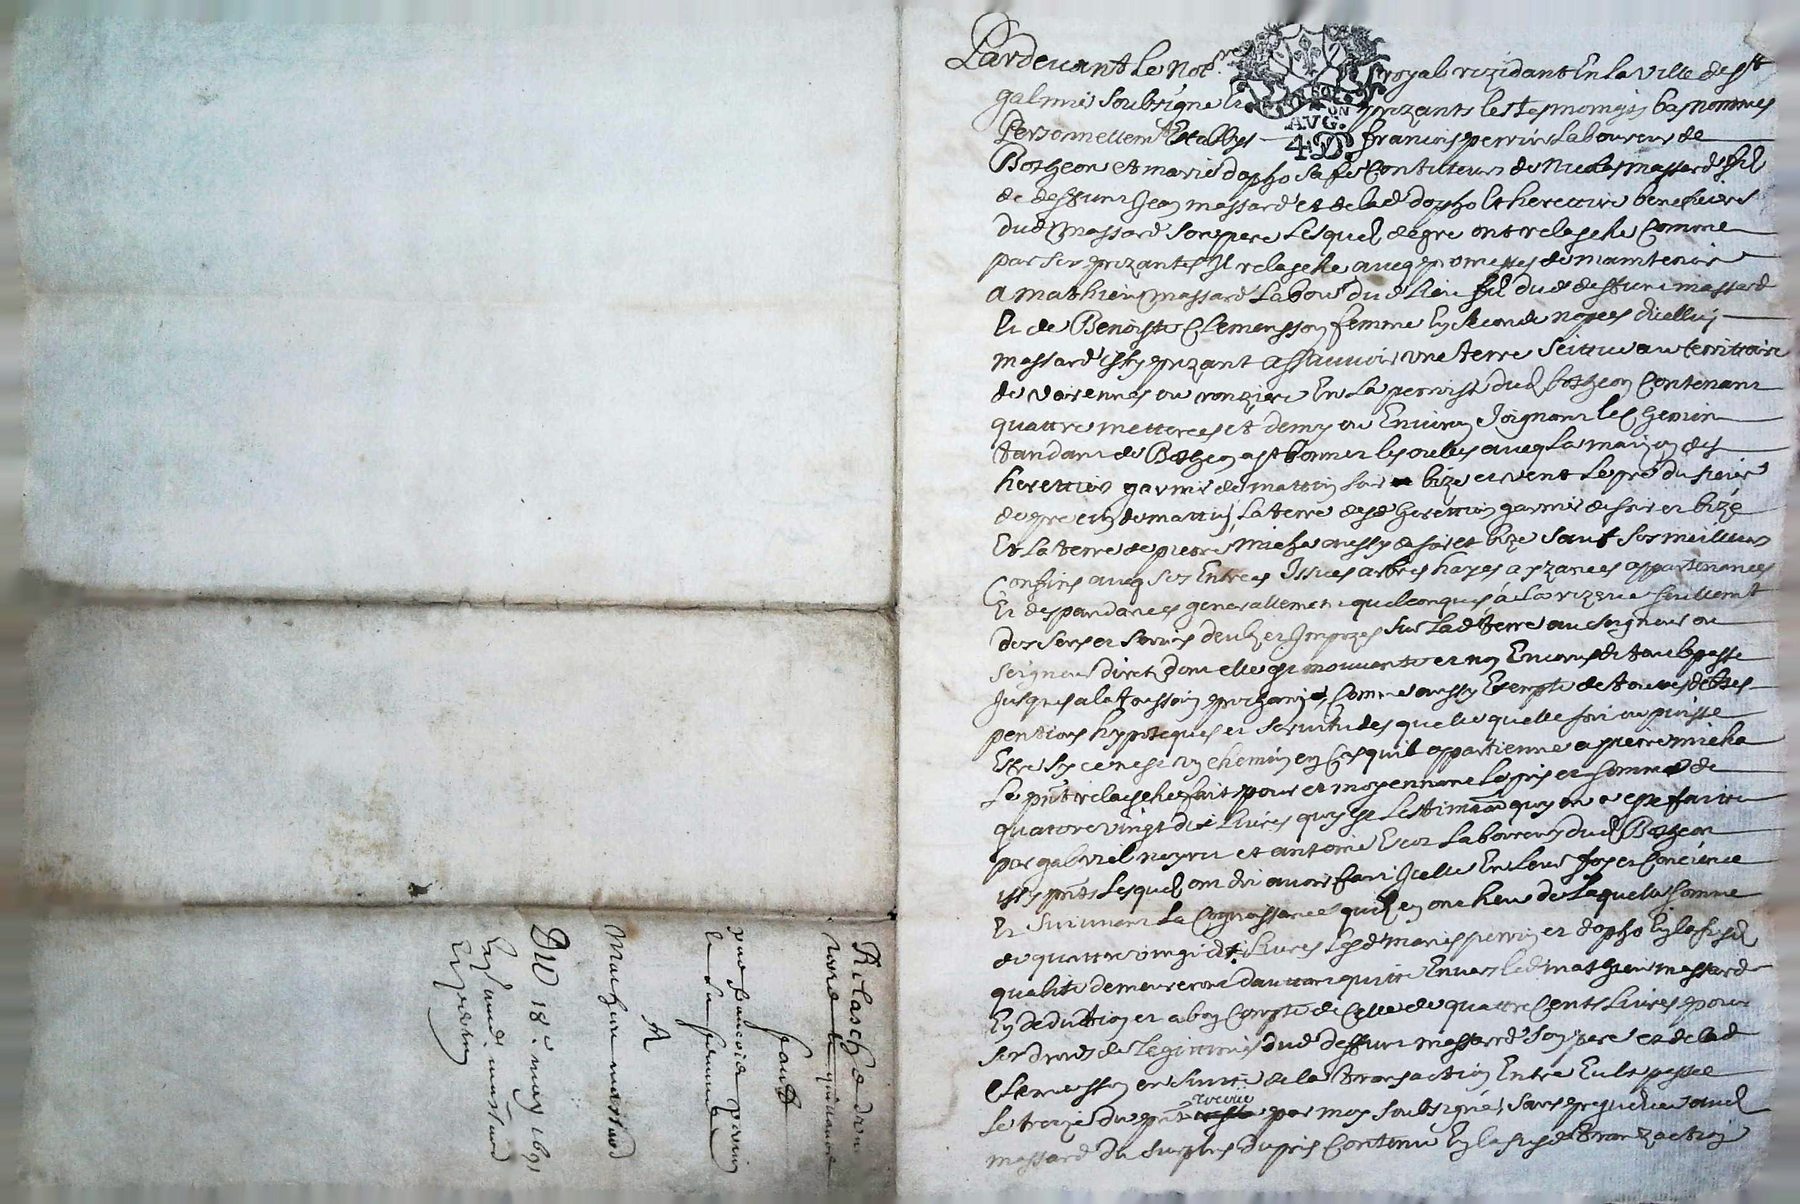 Pardevant le not.re royal rezidant en la ville de st
galmier soubsigné et prezants les tesmoingz bas nommes
Personnellemt establys francois perrin laboureur de
Botheon et marie dopho sa fe Contuteurs de nicolas massard filz
de deffunt Jean massard et de lad dopho et herettier beneficiere
dud massard son pere lesquelz de gre ont relasché Comme
par ses prezantes Il relasche avecq promesses de maintenir
a mathieu massard labour dud lieu filz dud deffunt massard
Et de Benoiste Clemensson femme en seconde nopces dicelluy
massard issy prezant assavoir une terre scittue au territoire
de varennes ou ronziere En la perroisse dud botheon Contenant
quattre metterees et demy ou Environ Joignant le Chemin
tandant de Botheon a st bonnet les oulles avecq la maison des
herettiers garnier de mattin soir bize et vent le pré du sieur
de mattin la terre desd herettiers garnier de soir et bizé
Et la terre de pierre micha aussy de soir et bize sauf ses meilleurs
Confins avecq ses Entrees Issues arbres hayes ayzances appartenances
Et despandances generallement quelconques à la rezerve seullemt
des sens et servis deubz et Impozes sur lad terre au seigneur ou
seigneurs direct dont elle est mouvante et non Encores de tout le passe
Jusques a la toussain prochain Comme aussy Exempte de toutes debtes
pentions hypoteques et servitudes quelle quelle soit ou puisse
Estre sy ce nest un chemin en Ce quil appartienne a pierre micha
Le pnt relasche fait pour et moyennant le pris et somme de
quatorevingt dix livres quy est lestimaon quy en a este faitte
par gabriel neyru et antoine laboureurs dud Botheon
issy pnts lesquelz ont dit avoir fait Icelle En leur foy et Concience
Et suivant la Cognoissance quilz en ont heu de laquelle somme
de quattre vingt dix livres lesd maries perrin et dopho En lasusd
qualité demeureront dautant quitte Envers led mathieu massard
En deduction et a bon Compte de Celle de quattre Cents livres pour
ses droits de legittime dud deffunt massard son pere et de lad
Clemensson en suitte de la transaction Entre Eulx passee
Le treize du pnt receue par moy soubsigné, sans prejudice aud
massard du surplus du pris Contenu En lasusd tranzaction
Relasche dune
terre quittance
faitt
par francois perrin
et sa femme
A
Mathieu massard
Du 18e may 1691